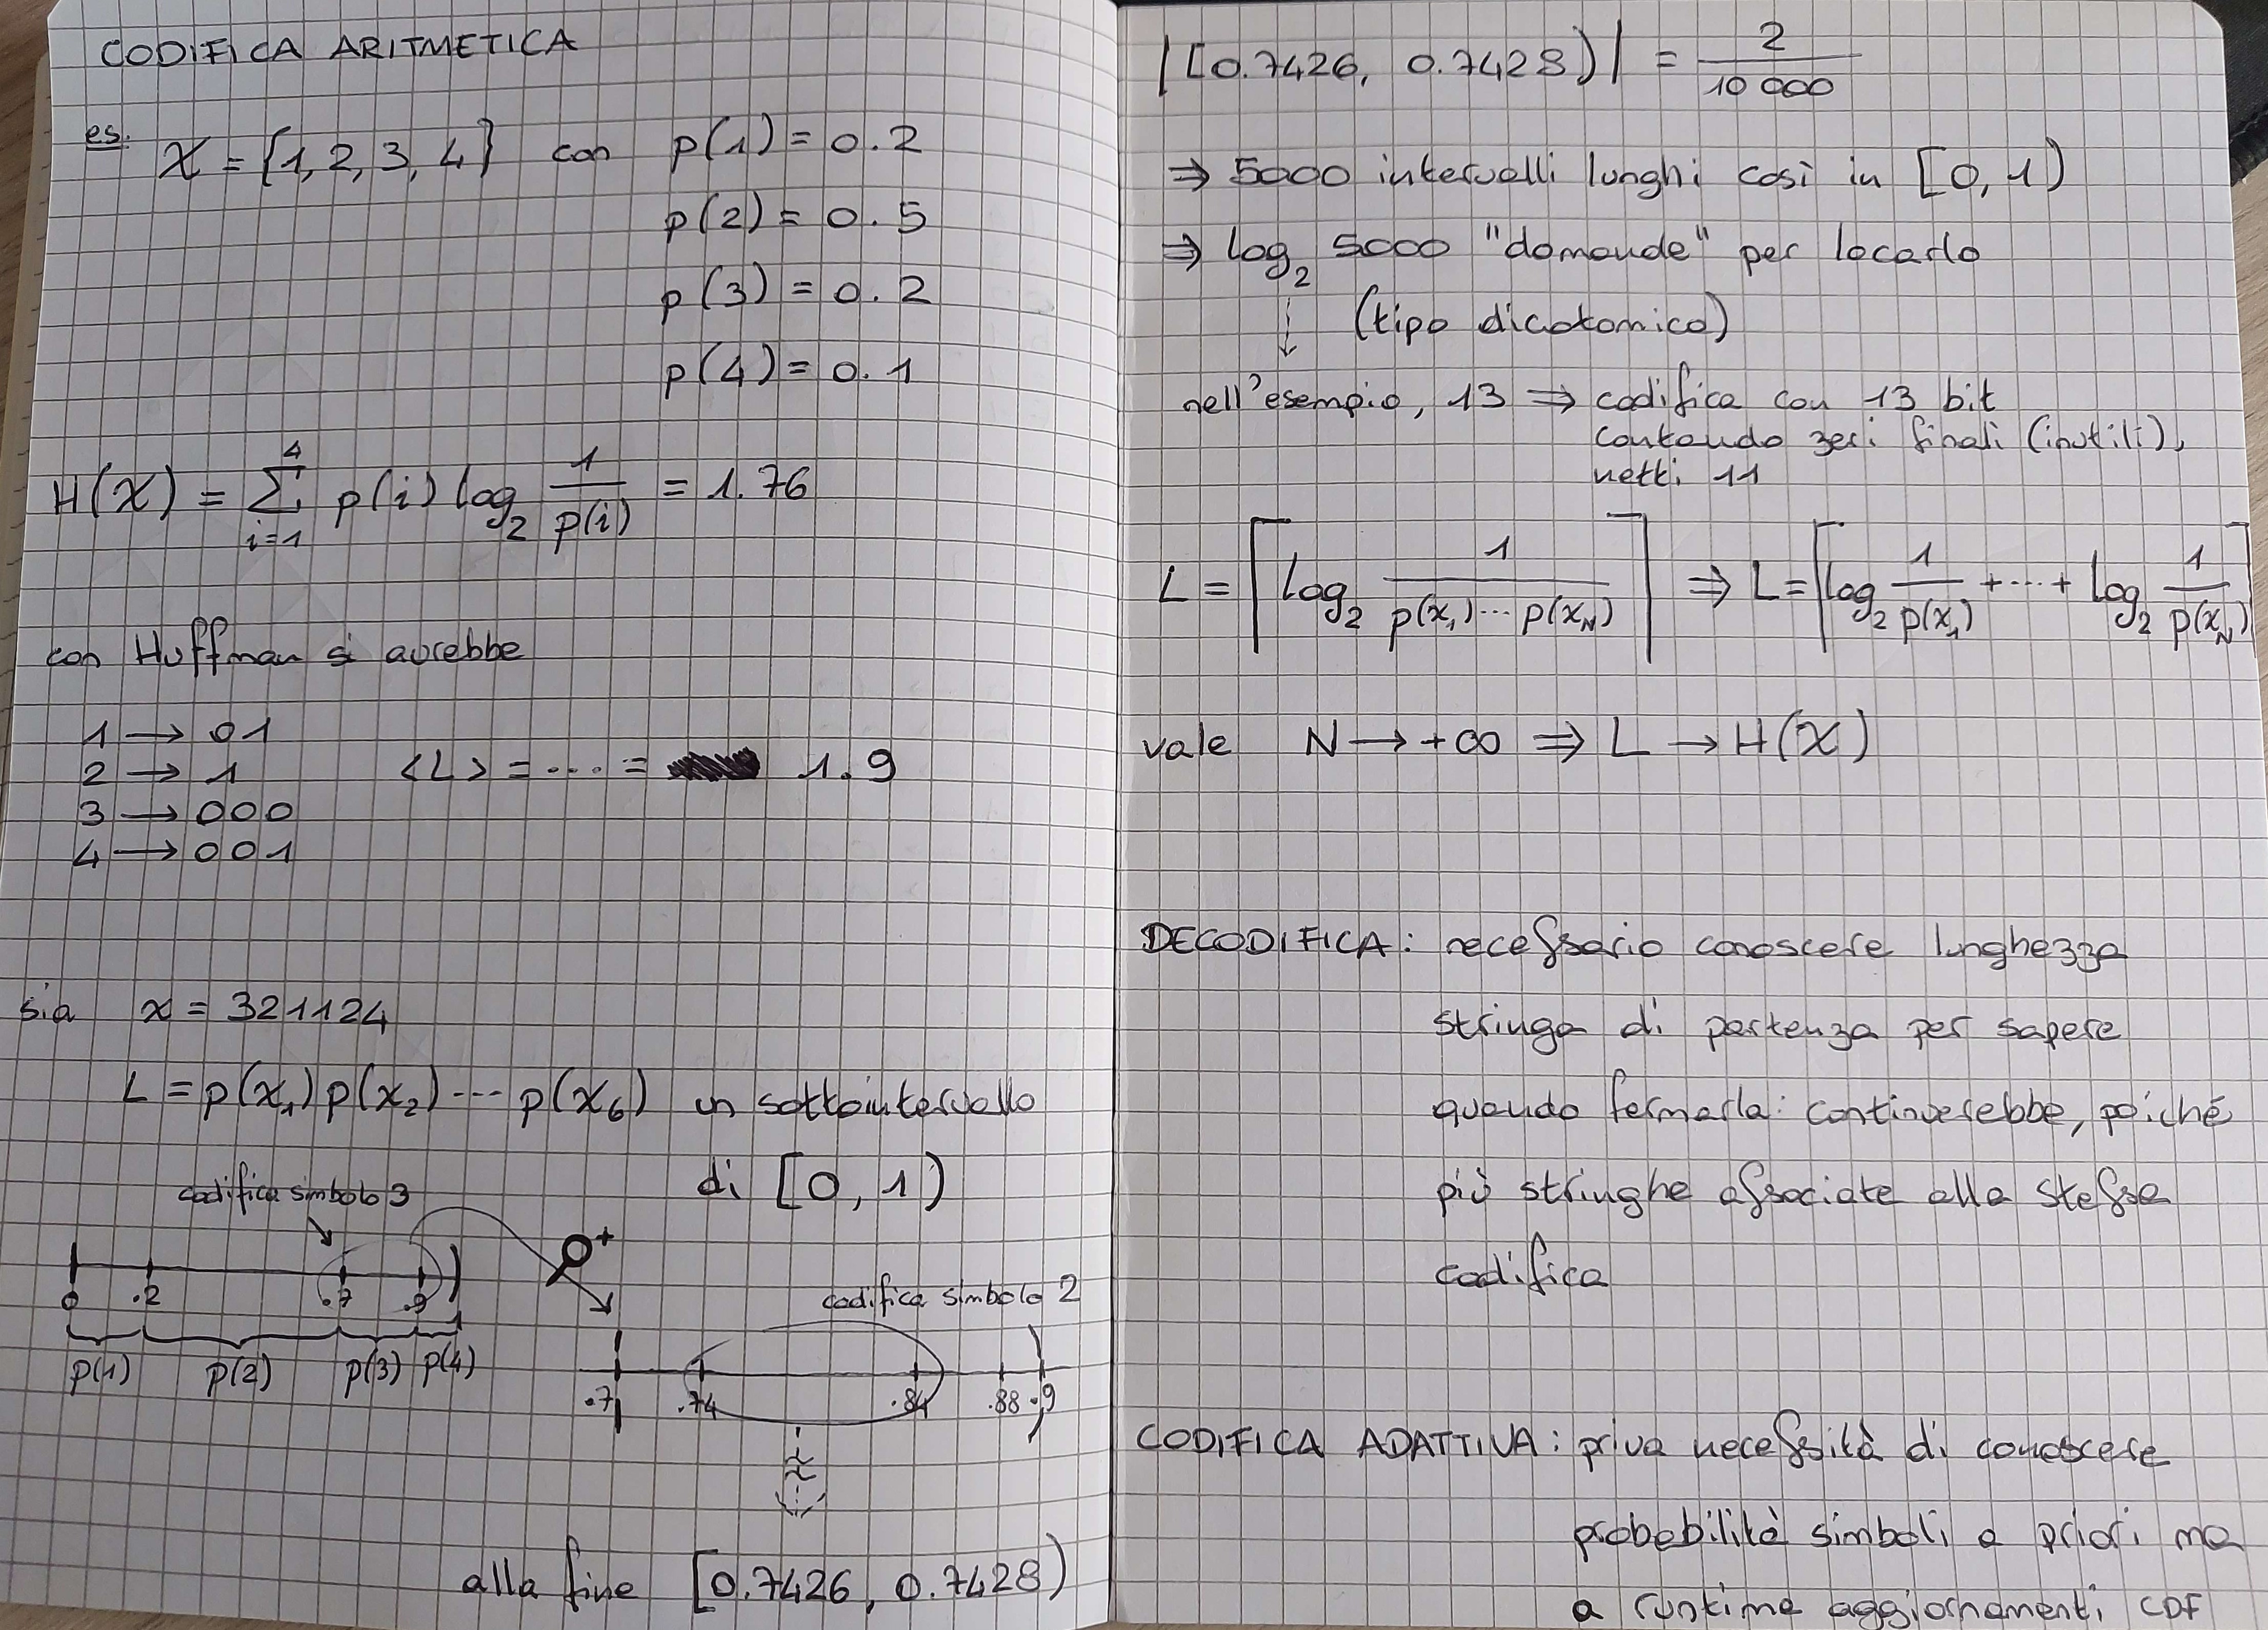 CODIFICA ARITMETICA
es. X = {1, 2, 3, 4} con p(1) = 0.2
p(2) = 0.5
p(3) = 0.2
p(4) = 0.1
H(X) = ∑_{i=1}^{4} p(i) log₂ 1/p(i) = 1.76
con Huffman si avrebbe
1 → 01
2 → 1
3 → 000
4 → 001
<L> = ... = 1.9
sia x = 321124
L = p(x₁) p(x₂) ... p(x₆) un sottointervallo
di [0, 1)
codifica simbolo 3
0 .2 .7 .9 1
p(1) p(2) p(3) p(4)
+
codifica simbolo 2
.7 .74 .84 .88 .9
alla fine [0.7426, 0.7428)
|[0.7426, 0.7428)| = 2/10 000
⇒ 5000 intervalli lunghi così in [0, 1)
⇒ log₂ 5000 "domande" per locarlo
(tipo dicotomico)
nell'esempio, 13 ⇒ codifica con 13 bit
contando zeri finali (inutili),
netti 11
L = ⌈log₂ 1/(p(x₁) ... p(x_N))⌉ ⇒ L = ⌈log₂ 1/p(x₁) + ... + log₂ 1/p(x_N)⌉
vale N → +∞ ⇒ L → H(X)
DECODIFICA: necessario conoscere lunghezza
stringa di partenza per sapere
quando fermarla: continuerebbe, poiché
più stringhe associate alla stessa
codifica
CODIFICA ADATTIVA: priva necessità di conoscere
probabilità simboli a priori ma
a runtime aggiornamenti CDF